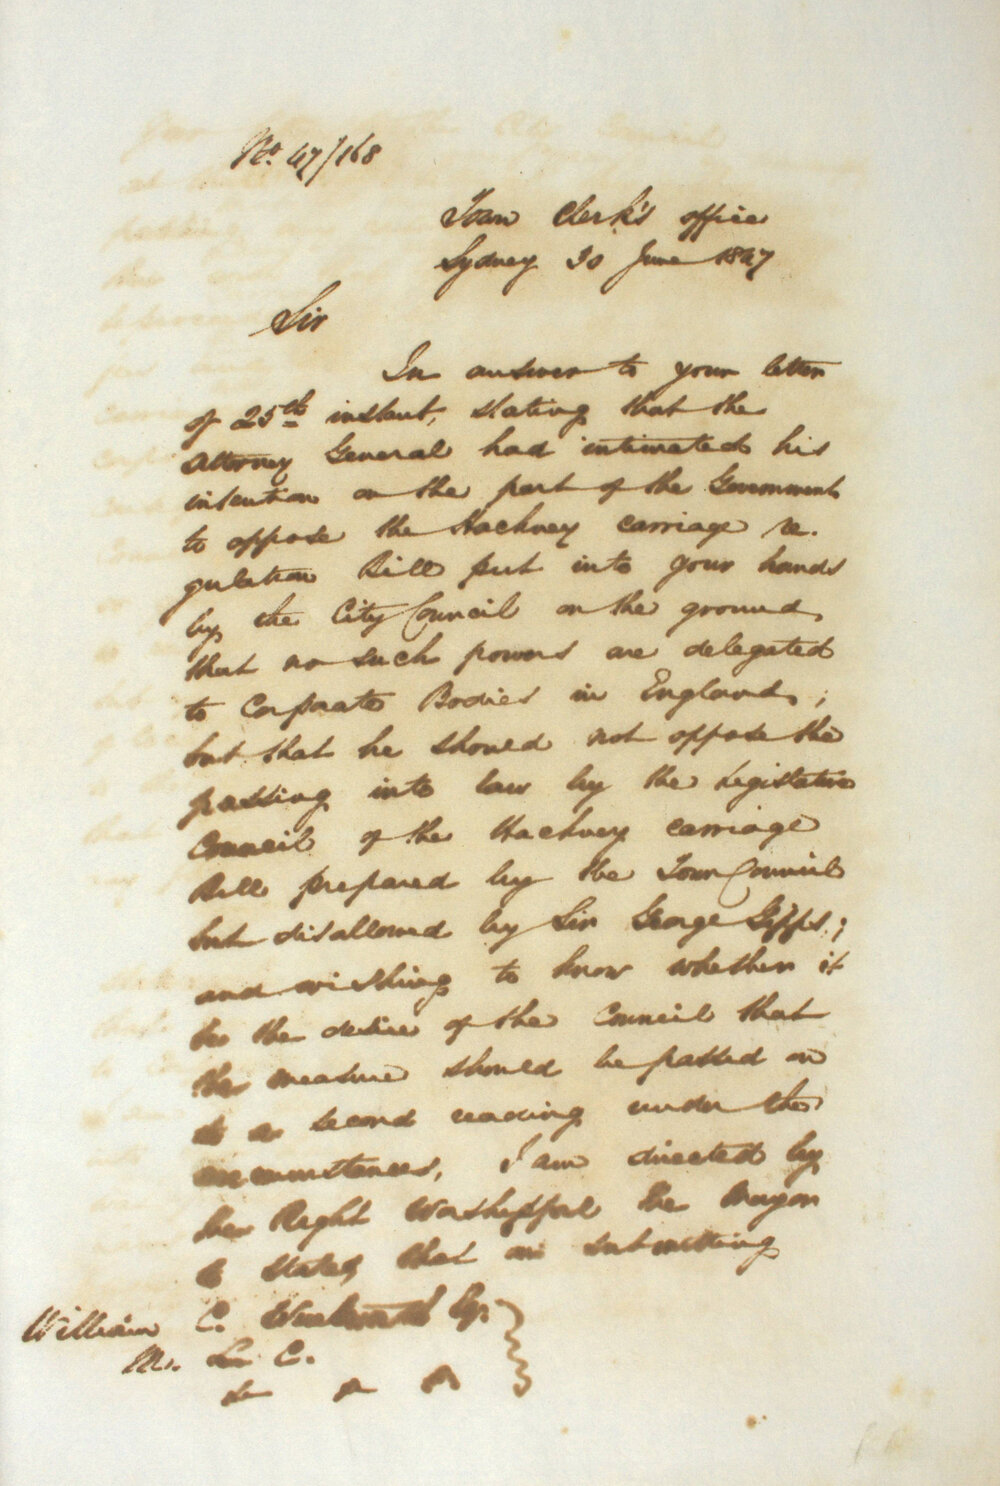 No. 47/168
Town Clerk's office
Sydney 30 June 1847
Sir
In answer to your letter
of 25th instant, stating that the
Attorney General had intimated his
intention on the part of the Government
to oppose the Hackney carriage re.
gulation Bill put into your hands
by the City Council on the ground
that no such powers are delegated
to Corporate Bodies in England;
but that he should not oppose the
passing into law by the Legislative
Council of the Hackney carriage
Bill prepared by the Town Council
but disallowed by Sir George Gipps;
and wishing to know whether it
be the desire of the Council that
the measure should be passed on
to a second reading under the
circumstances, I am directed by
the Right Worshipful the Mayor
to state, that on submitting
William C. Wentworth Esq.
M. L. C.